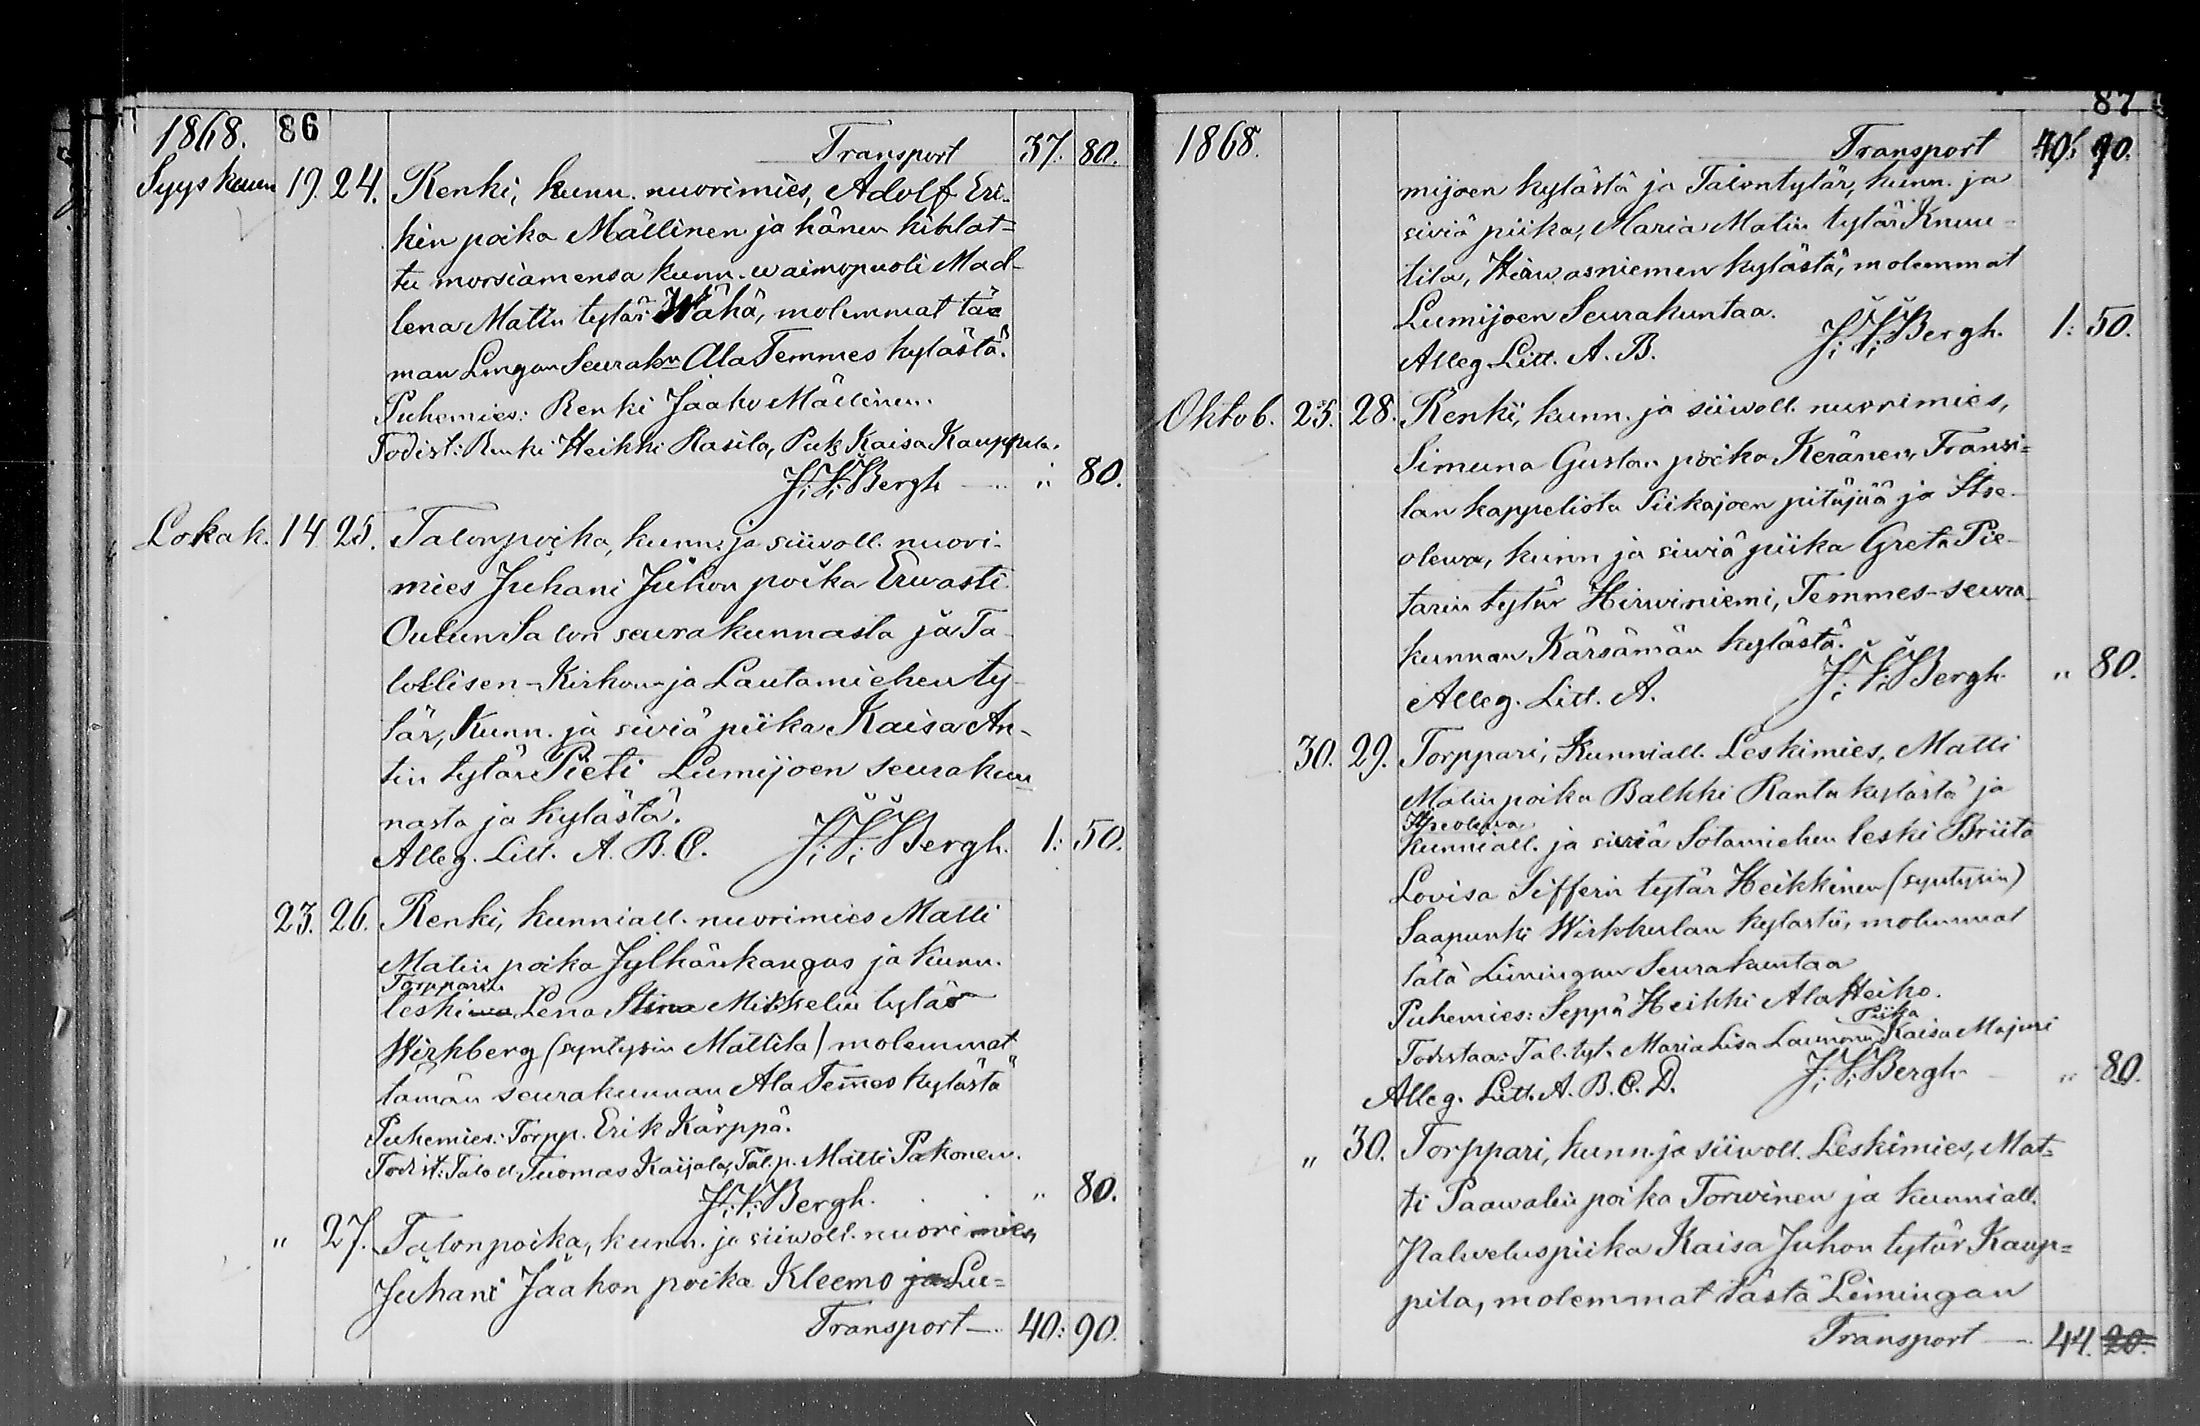 1868. 86
Transport 37. 80.
Syyskuun 19. 24. Renki, kunn. nuorimies, Adolf Eri-
kin poika Mällinen ja hänen kihlat=
tu morsiamensa kunn. waimopuoli Mad-
lena Matin tytär Wähä, molemmat tä=
man Lingan Seurakn Ala Temmes kylästä.
Puhemies: Renki Jaako Mällinen.
Todist: Renki Heikki Rasila, Kaisa Kauppila.
J. F. Bergh — " 80.
Lokak. 14 25. Talonpoika, kunn. ja siiwoll. nuori-
mies Juhani Juhon poika Erwasti
Oulun Salon seurakunnasta ja Ta-
lollisen-Kirkon-ja Lautamiehen ty-
tär, Kunn. ja siviä piika Kaisa An-
tin tytär Pieti Lumijoen seurakun
nasta ja kylästä.
Alleg. Litt. A. B. C. J. F. Bergh. 1: 50.
23. 26. Renki, kunniall. nuorimies Matti
Matin poika Jylhänkangas ja kunn.
Torpparin
leski Lena Stina Mikkelin tytär
Wirkberg (syntysin Mattila) molemmat
tämän seurakunnan Ala Temmes kylästä
Puhemies: Torpp. Erik Kärppä.
Todist: Taloll. Tuomas Kaijala, Tal.p. Matti Pakonen.
J. F. Bergh. " 80.
" 27. Talonpoika, kunn. ja siiwoll. nuorimies,
Juhani Jaakon poika Kleemo ja Lu=
Transport — 40: 90.
87
1868. Transport 40: 90.
mijoen kylästä ja Talontytär, kunn. ja
siviä piika, Maria Matin tytär Knuu-
tila, Hirwasniemen kylästä, molemmat
Lumijoen Seurakuntaa.
Alleg. Litt. A. B. J. F. Bergh. 1: 50.
Oktob. 25. 28. Renki, kunn. ja siiwoll. nuorimies,
Simuna Gustan poika Keränen, Fransi=
lan kappelista Siikajoen pitäjää ja Itse-
olewa, kunn ja siwiä piika Greta Pie-
tarin tytär Hirwiniemi, Temmes-seura-
kunnan Kärsämän kylästä.
Alleg. Litt. A. J. F. Bergh. " 80.
30. 29. Torppari, Kunniall. Leskimies, Matti
Matin poika Balkki Ranta kylästä ja
Itseolewa
kunniall. ja siviä Sotamiehen leski Briita
Lovisa Sifferin tytär Heikkinen (syntysin)
Saapunki Wirkkulan kylästä, molemmat
tätä Limingan Seurakuntaa
Puhemies: Seppä Heikki Ala Heiko.
Piika
Todistaa: Tal. tyt. Maria Lisa Kaisa Majuri
Alleg. Litt. A. B. C. D. J. F. Bergh — " 80.
" 30. Torppari, kunn. ja siiwoll. Leskimies, Mat=
ti Paawalin poika Torwinen ja kunniall.
Palweluspiika Kaisa Juhon tytär Kaup=
pila, molemmat tästä Limingan
Transport — 44. 20.